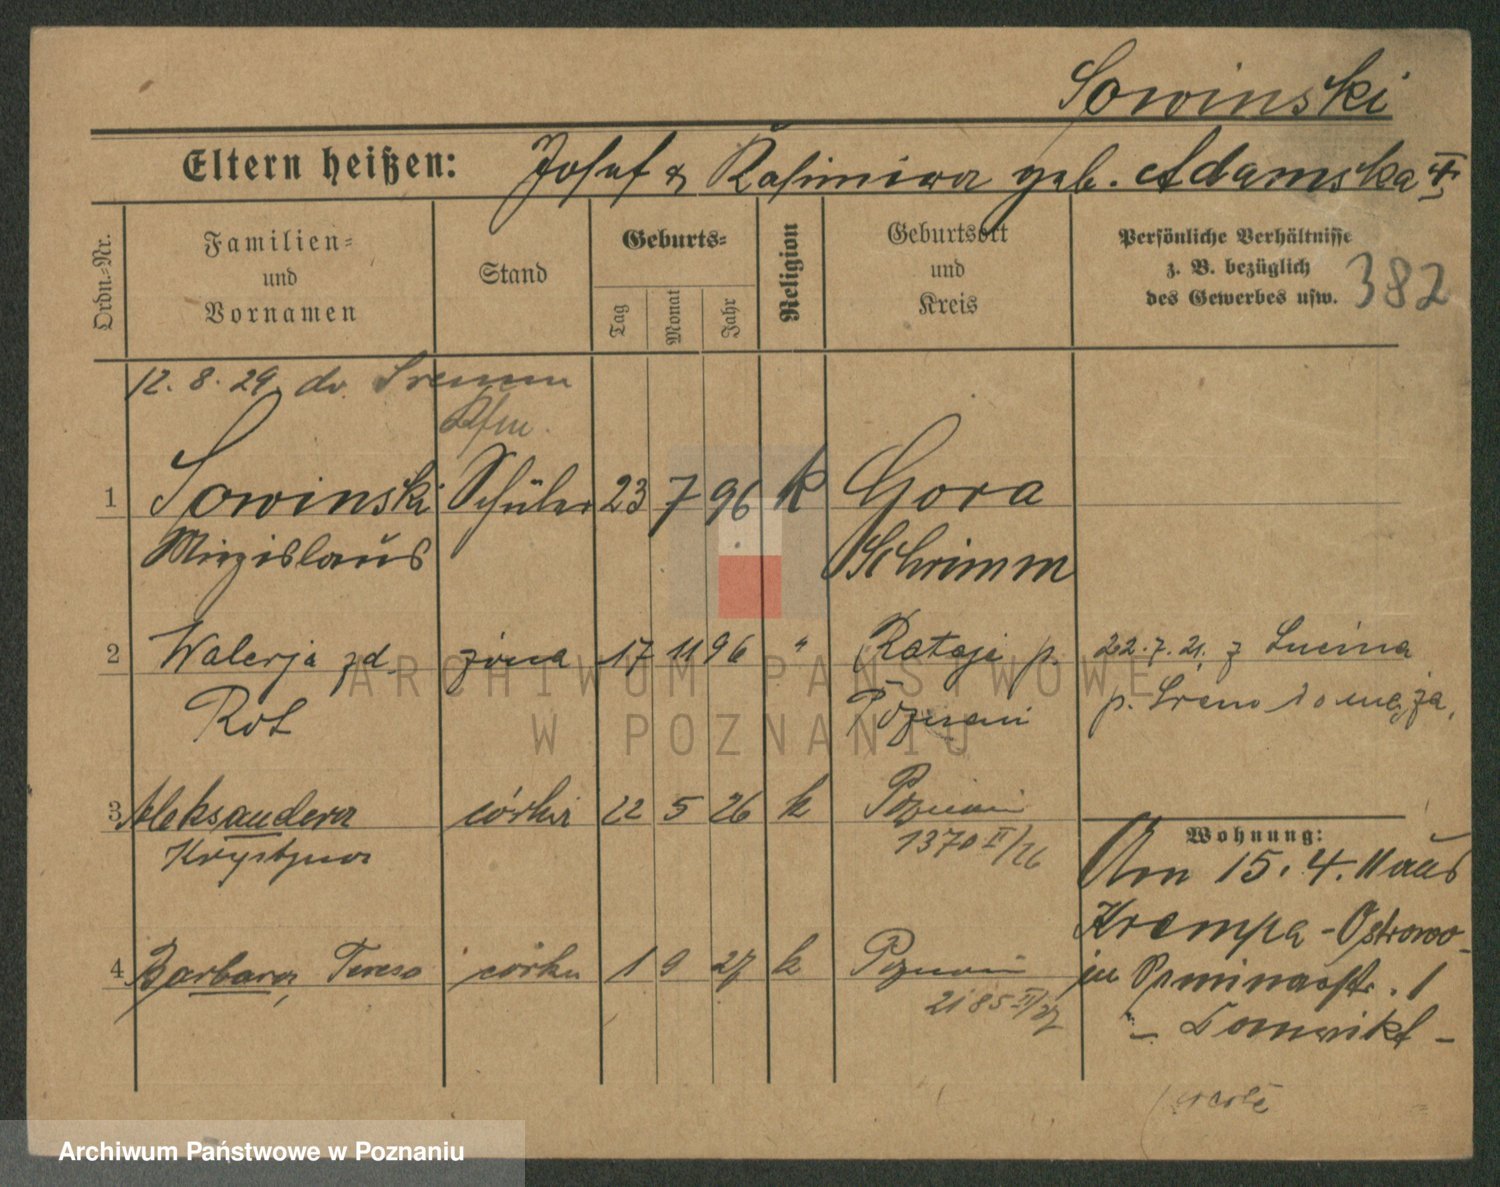 Sowinski
Eltern heißen: Josef & Kasimira geb. Adamska
Ordn.-Nr.
Familien- und Vornamen
Stand
Geburts-
Tag
Monat
Jahr
Religion
Geburtsort und Kreis
Persönliche Verhältnisse
z. B. bezüglich
des Gewerbes usw.
382
12. 8. 29. do Sremu
Kfm.
1 Sowinski Schüler 23 7 96 k Gora
Miezislaus Schrimm
2 Walerja zd. żona 17 11 96 " Rataje p.
Rot Poznań
22. 7. 21. z Lucina
p. Srem do męża.
3 Aleksandra córka 22 5 26 k Poznań
Krystyna 1370 II/26
4 Barbara, Teresa córka 1 9 27 k Poznań
2185 III/27
Wohnung:
Am 15. 4. 11 aus
Krempa - Ostrowo
in 1
circle
ARCHIWUM PAŃSTWOWE
W POZNANIU
Archiwum Państwowe w Poznaniu